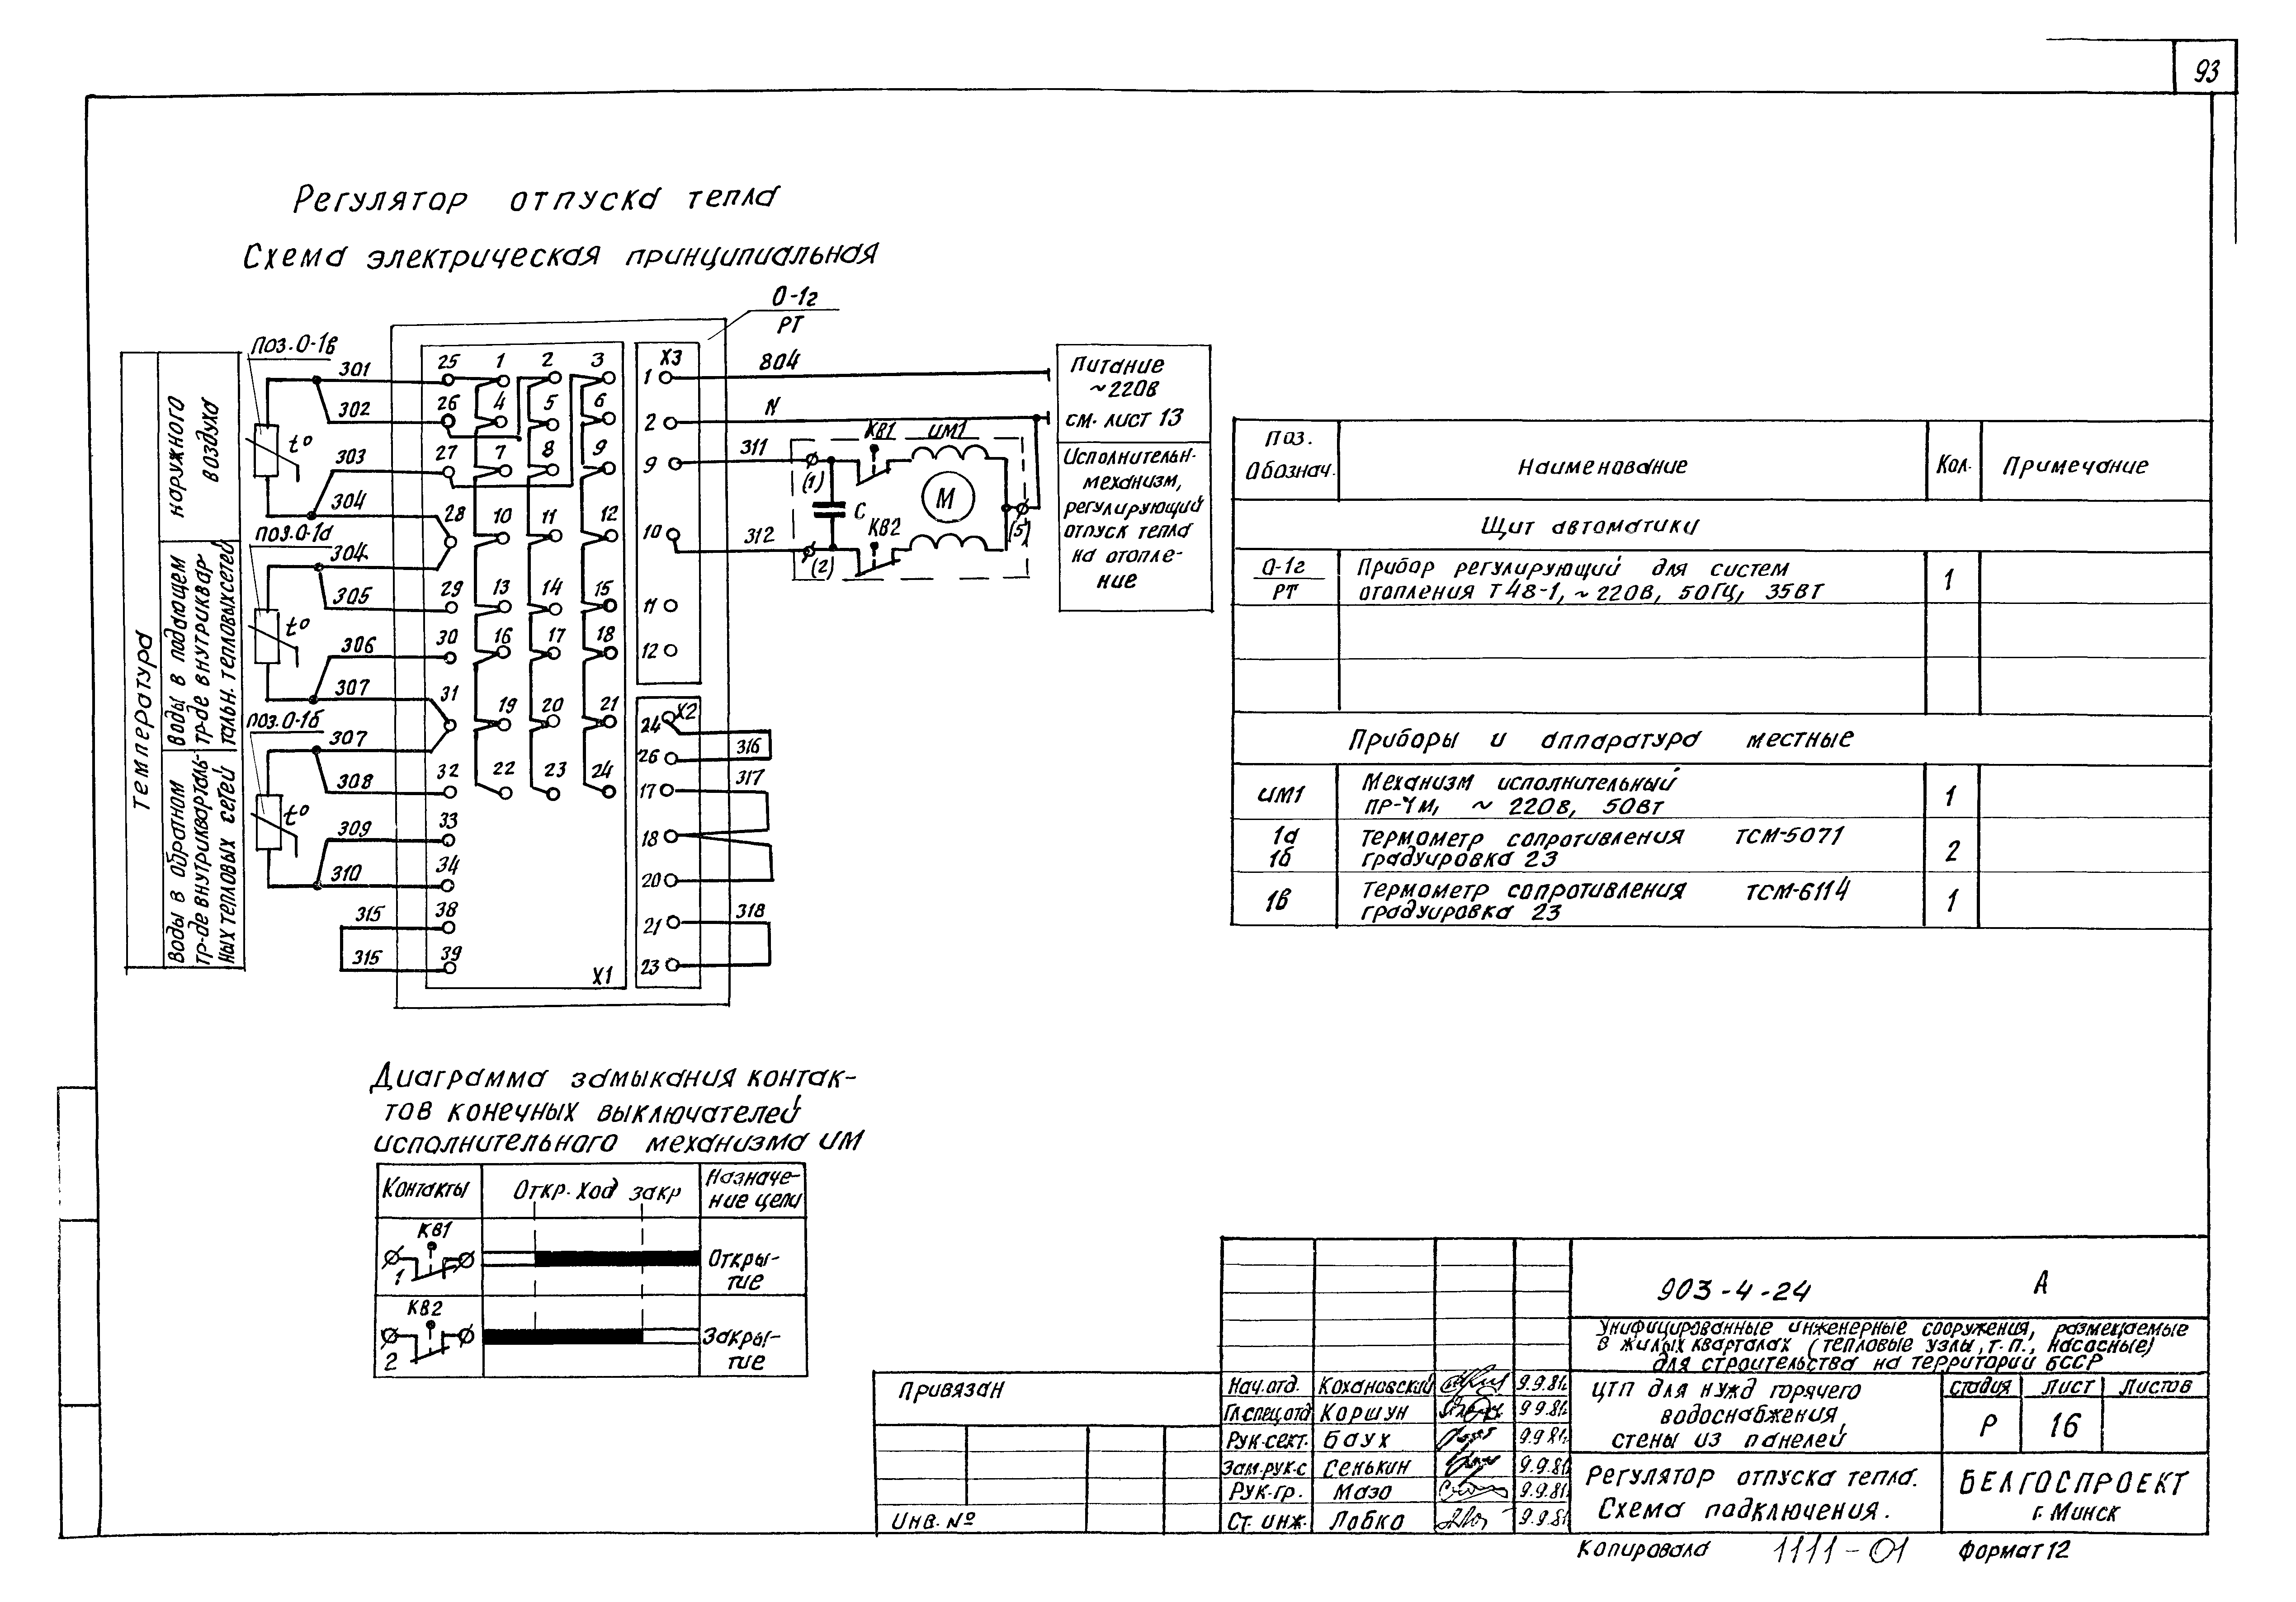 93
Регулятор отпуска тепла
Схема электрическая принципиальная
О-1г
РТ
Температура
наружного
воздуха
Воды в подающем
тр-де внутриквар-
тальн. тепловых сетей
Воды в обратном
тр-де внутрикварталь-
ных тепловых сетей
поз. О-1в
301
302
303
304
t°
поз. О-1а
304
305
306
307
t°
поз. О-1б
307
308
309
310
t°
315
315
25 1 2 3
26 4 5 6
27 7 8 9
28 10 11 12
29 13 14 15
30 16 17 18
31 19 20 21
32 22 23 24
33
34
38
39
Х1
Х3
1
2
9
10
11
12
Х2
24
26
17
18
20
21
23
316
317
318
804
N
311
312
КВ1 ИМ1
(1)
С
М
(5)
КВ2
(2)
Питание
~220В
см. лист 13
Исполнительн.
механизм,
регулирующий
отпуск тепла
на отопле-
ние
Поз.
Обознач.
Наименование
Кол.
Примечание
Щит автоматики
О-1г
РТ
Прибор регулирующий для систем
отопления Т48-1, ~220В, 50Гц, 35Вт
1
Приборы и аппаратура местные
ИМ1
Механизм исполнительный
ПР-1М, ~ 220В, 50Вт
1
1а
1б
Термометр сопротивления ТСМ-5071
градуировка 23
2
1в
Термометр сопротивления ТСМ-6114
градуировка 23
1
Диаграмма замыкания контак-
тов конечных выключателей
исполнительного механизма ИМ
Контакты
Откр. Ход закр
Назначе-
ние цепи
КВ1
1
Откры-
тие
КВ2
2
Закры-
тие
Привязан
Инв. №
903-4-24 А
Унифицированные инженерные сооружения, размещаемые
в жилых кварталах (тепловые узлы, т.п., насосные)
для строительства на территории БССР
Нач.отд. Кохановский 9.9.81
Гл.спец.отд Коршун 9.9.81
Рук.сект. Баух 9.9.81
Зам.рук.с Сенькин 9.9.81
Рук.гр. Мазо 9.9.81
Ст. инж. Лобко 9.9.81
ЦТП для нужд горячего
водоснабжения,
стены из панелей
Стадия Лист Листов
Р 16
Регулятор отпуска тепла.
Схема подключения.
БЕЛГОСПРОЕКТ
г. Минск
Копировала 1111-01 Формат 12